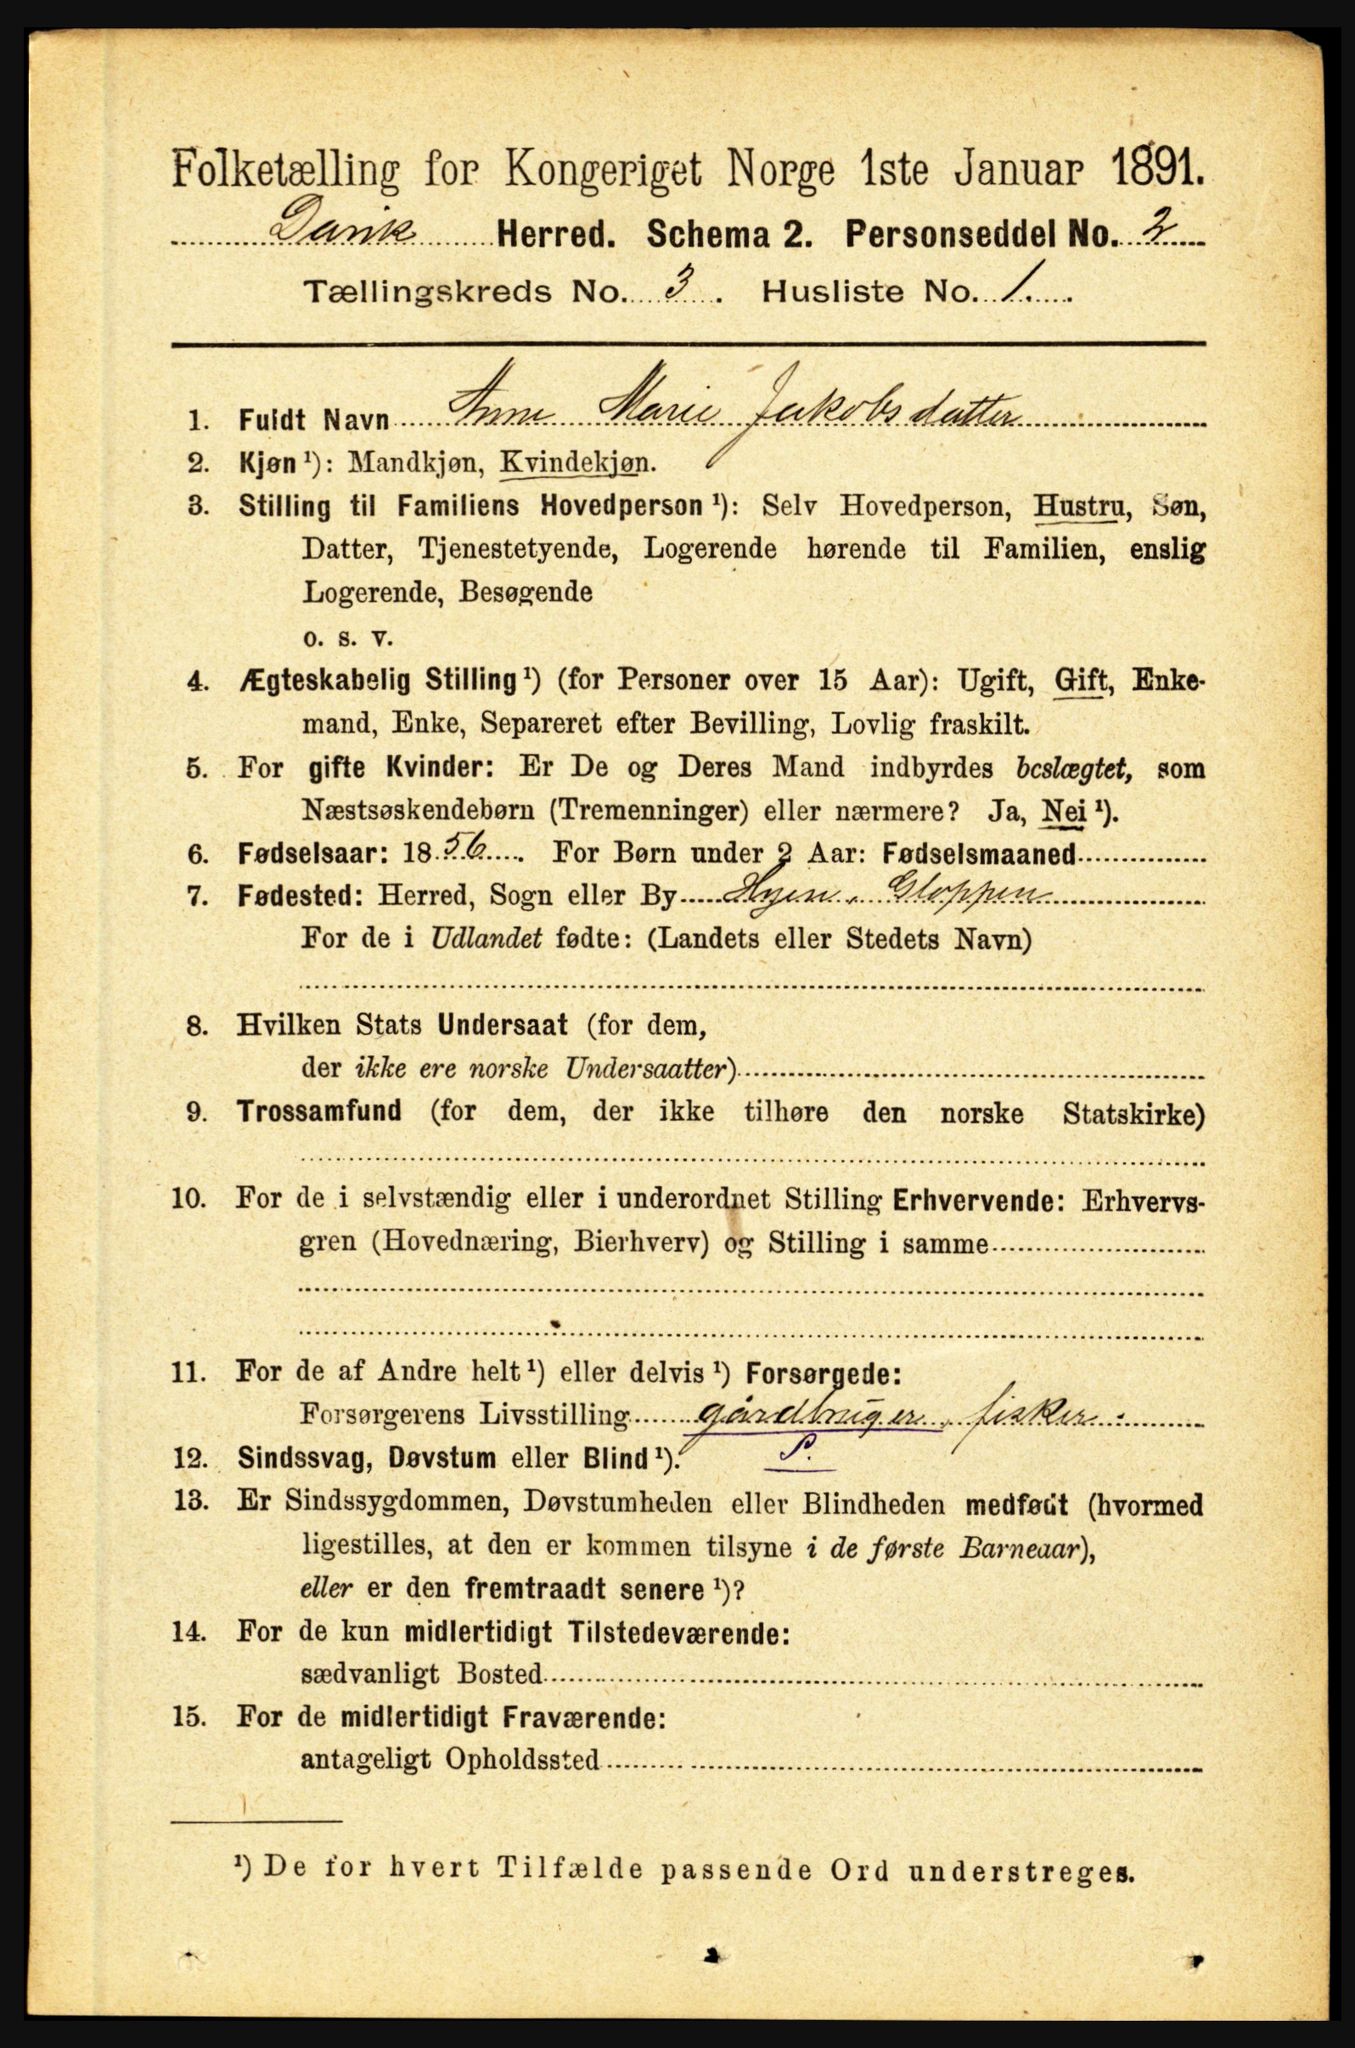 Folketælling for Kongeriget Norge 1ste Januar 1891.
Davik Herred. Schema 2. Personseddel No. 2
Tællingskreds No. 3. Husliste No. 1.
1. Fuldt Navn Anne Marie Jakobsdatter
2. Kjøn ¹): Mandkjøn, Kvindekjøn.
3. Stilling til Familiens Hovedperson ¹): Selv Hovedperson, Hustru, Søn,
Datter, Tjenestetyende, Logerende hørende til Familien, enslig
Logerende, Besøgende
o. s. v.
4. Ægteskabelig Stilling ¹) (for Personer over 15 Aar): Ugift, Gift, Enke-
mand, Enke, Separeret efter Bevilling, Lovlig fraskilt.
5. For gifte Kvinder: Er De og Deres Mand indbyrdes beslægtet, som
Næstsøskendebørn (Tremenninger) eller nærmere? Ja, Nei ¹).
6. Fødselsaar: 1856. For Børn under 2 Aar: Fødselsmaaned
7. Fødested: Herred, Sogn eller By Hyen, Gloppen
For de i Udlandet fødte: (Landets eller Stedets Navn)
8. Hvilken Stats Undersaat (for dem,
der ikke ere norske Undersaatter)
9. Trossamfund (for dem, der ikke tilhøre den norske Statskirke)
10. For de i selvstændig eller i underordnet Stilling Erhvervende: Erhvervs-
gren (Hovednæring, Bierhverv) og Stilling i samme
11. For de af Andre helt ¹) eller delvis ¹) Forsørgede:
Forsørgerens Livsstilling gårdbruger, fisker.
12. Sindssvag, Døvstum eller Blind ¹). S.
13. Er Sindssygdommen, Døvstumheden eller Blindheden medfødt (hvormed
ligestilles, at den er kommen tilsyne i de første Barneaar),
eller er den fremtraadt senere ¹)?
14. For de kun midlertidigt Tilstedeværende:
sædvanligt Bosted
15. For de midlertidigt Fraværende:
antageligt Opholdssted
¹) De for hvert Tilfælde passende Ord understreges.